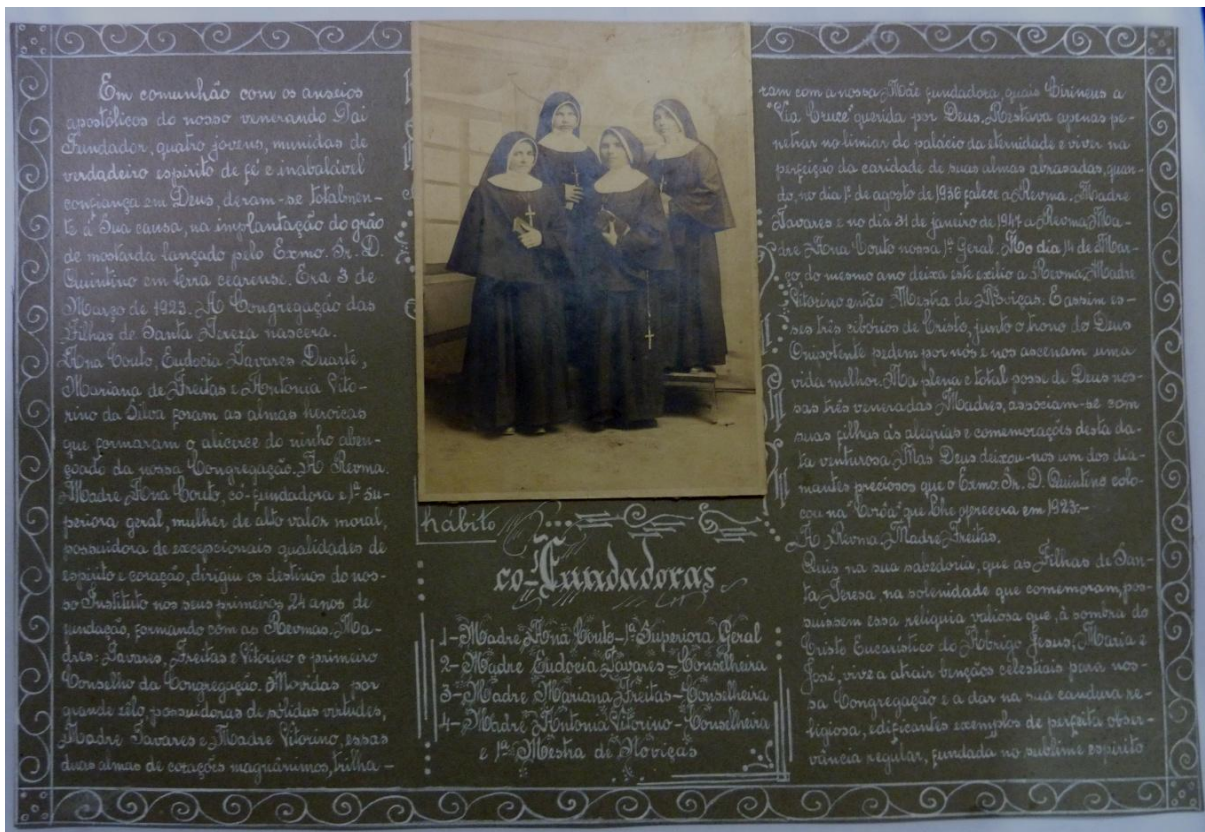 Em comunhão com os anseios
apostólicos do nosso venerando Pai
Fundador, quatro jovens, munidas de
verdadeiro espírito de fé e inabalável
confiança em Deus, deram-se totalmen-
te à Sua causa, na implantação do grão
de mostarda lançado pelo Exmo. Sr. D.
Quintino em terra cearense. Era 3 de
Março de 1923. A Congregação das
Filhas de Santa Tereza nascera.
Ana Couto, Eudocia Tavares Duarte,
Mariana de Freitas e Antonia Vito-
rino da Silva foram as almas heroicas
que formaram o alicerce do ninho aben-
çoado da nossa Congregação. A Revma.
Madre Ana Couto, có-fundadora e 1ª su-
periora geral, mulher de alto valor moral,
possuidora de excepcionais qualidades de
espírito e coração, dirigiu os destinos do nos-
so Instituto nos seus primeiros 24 anos de
fundação, formando com as Revmas. Ma-
dres: Tavares, Freitas e Vitorino o primeiro
Conselho da Congregação. Movidas por
grande zêlo, possuidoras de sólidas virtudes,
Madre Tavares e Madre Vitorino, essas
duas almas de corações magnânimos, trilha-
hábito
co-Fundadoras
1-Madre Ana Couto-1ª Superiora Geral
2-Madre Eudocia Tavares-Conselheira
3-Madre Mariana Freitas-Conselheira
4-Madre Antonia Vitorino-Conselheira
e 1ª Mestra de Noviças
ram com a nossa Mãe fundadora, quais Cirineus a
"Via Cruce" querida por Deus. Restava apenas pe-
netrar no limiar do palácio da eternidade e viver na
perfeição da caridade de suas almas abrasadas, quan-
do, no dia 1º de agosto de 1936 falece a Revma. Madre
Tavares e no dia 31 de janeiro de 1947 a Revma. Ma-
dre Ana Couto nossa 1ª Geral. No dia 14 de Mar-
ço do mesmo ano deixa este exílio a Revma. Madre
Vitorino então Mestra de Noviças. E assim es-
ses três cibórios de Cristo, junto o trono do Deus
Onipotente pedem por nós e nos ascenam uma
vida melhor. Na plena e total posse de Deus nos-
sas três veneradas Madres, associam-se com
suas filhas às alegrias e comemorações desta da-
ta venturosa. Mas Deus deixou-nos um dos dia-
mantes preciosos que o Exmo. Sr. D. Quintino colo-
cou na "Corôa" que Lhe oferecera em 1923:-
A Revma. Madre Freitas.
Quis na sua sabedoria, que as Filhas de San-
ta Teresa, na solenidade que comemoram, pos-
suissem essa relíquia valiosa que, à sombra do
Cristo Eucarístico do Abrigo Jesus, Maria e
José, vive a atrair bençãos celestiais para nos-
sa Congregação e a dar na sua candura re-
ligiosa, edificantes exemplos de perfeita obser-
vância regular, fundada no sublime espírito